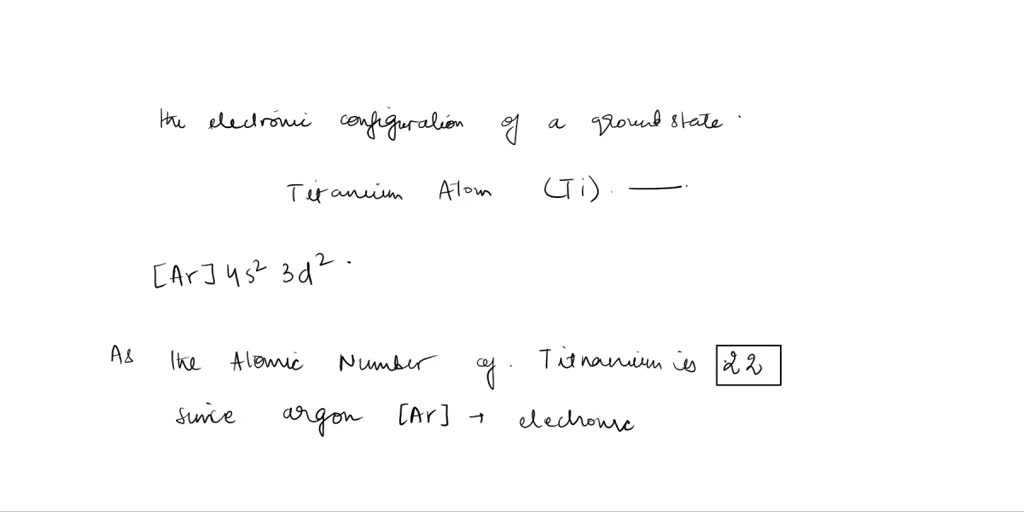 the electronic configuration of a ground state.
Titanium Atom (Ti). —
[Ar] 4s² 3d².
As the Atomic Number of. Titnanium is 22
since argon [Ar] → electronic